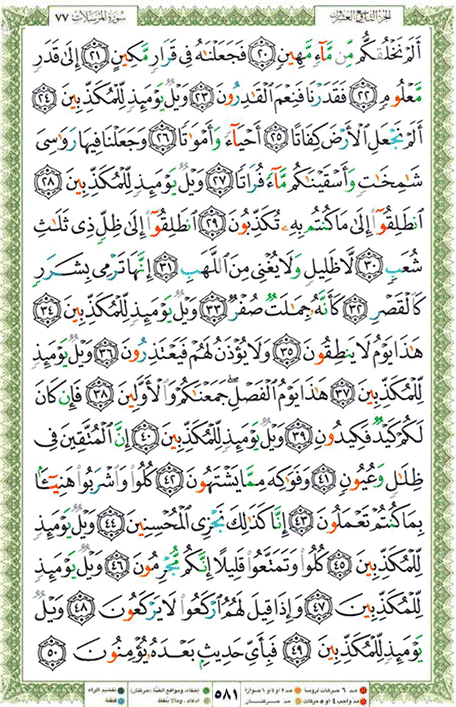 سورة المرسلات ٧٧ الجزء التاسع والعشرون
أَلَمْ نَخْلُقكُّم مِّن مَّآءٍ مَّهِينٍ ٢٠ فَجَعَلْنَٰهُ فِى قَرَارٍ مَّكِينٍ ٢١ إِلَىٰ قَدَرٍ
مَّعْلُومٍ ٢٢ فَقَدَرْنَا فَنِعْمَ ٱلْقَٰدِرُونَ ٢٣ وَيْلٌ يَوْمَئِذٍ لِّلْمُكَذِّبِينَ ٢٤
أَلَمْ نَجْعَلِ ٱلْأَرْضَ كِفَاتًا ٢٥ أَحْيَآءً وَأَمْوَٰتًا ٢٦ وَجَعَلْنَا فِيهَا رَوَٰسِىَ
شَٰمِخَٰتٍ وَأَسْقَيْنَٰكُم مَّآءً فُرَاتًا ٢٧ وَيْلٌ يَوْمَئِذٍ لِّلْمُكَذِّبِينَ ٢٨
ٱنطَلِقُوٓا۟ إِلَىٰ مَا كُنتُم بِهِۦ تُكَذِّبُونَ ٢٩ ٱنطَلِقُوٓا۟ إِلَىٰ ظِلٍّ ذِى ثَلَٰثِ
شُعَبٍ ٣٠ لَّا ظَلِيلٍ وَلَا يُغْنِى مِنَ ٱللَّهَبِ ٣١ إِنَّهَا تَرْمِى بِشَرَرٍ
كَٱلْقَصْرِ ٣٢ كَأَنَّهُۥ جِمَٰلَتٌ صُفْرٌ ٣٣ وَيْلٌ يَوْمَئِذٍ لِّلْمُكَذِّبِينَ ٣٤
هَٰذَا يَوْمُ لَا يَنطِقُونَ ٣٥ وَلَا يُؤْذَنُ لَهُمْ فَيَعْتَذِرُونَ ٣٦ وَيْلٌ يَوْمَئِذٍ
لِّلْمُكَذِّبِينَ ٣٧ هَٰذَا يَوْمُ ٱلْفَصْلِ ۖ جَمَعْنَٰكُمْ وَٱلْأَوَّلِينَ ٣٨ فَإِن كَانَ
لَكُمْ كَيْدٌ فَكِيدُونِ ٣٩ وَيْلٌ يَوْمَئِذٍ لِّلْمُكَذِّبِينَ ٤٠ إِنَّ ٱلْمُتَّقِينَ فِى
ظِلَٰلٍ وَعُيُونٍ ٤١ وَفَوَٰكِهَ مِمَّا يَشْتَهُونَ ٤٢ كُلُوا۟ وَٱشْرَبُوا۟ هَنِيٓـًٔۢا
بِمَا كُنتُمْ تَعْمَلُونَ ٤٣ إِنَّا كَذَٰلِكَ نَجْزِى ٱلْمُحْسِنِينَ ٤٤ وَيْلٌ يَوْمَئِذٍ
لِّلْمُكَذِّبِينَ ٤٥ كُلُوا۟ وَتَمَتَّعُوا۟ قَلِيلًا إِنَّكُم مُّجْرِمُونَ ٤٦ وَيْلٌ يَوْمَئِذٍ
لِّلْمُكَذِّبِينَ ٤٧ وَإِذَا قِيلَ لَهُمُ ٱرْكَعُوا۟ لَا يَرْكَعُونَ ٤٨ وَيْلٌ
يَوْمَئِذٍ لِّلْمُكَذِّبِينَ ٤٩ فَبِأَىِّ حَدِيثٍۭ بَعْدَهُۥ يُؤْمِنُونَ ٥٠
٥٨١